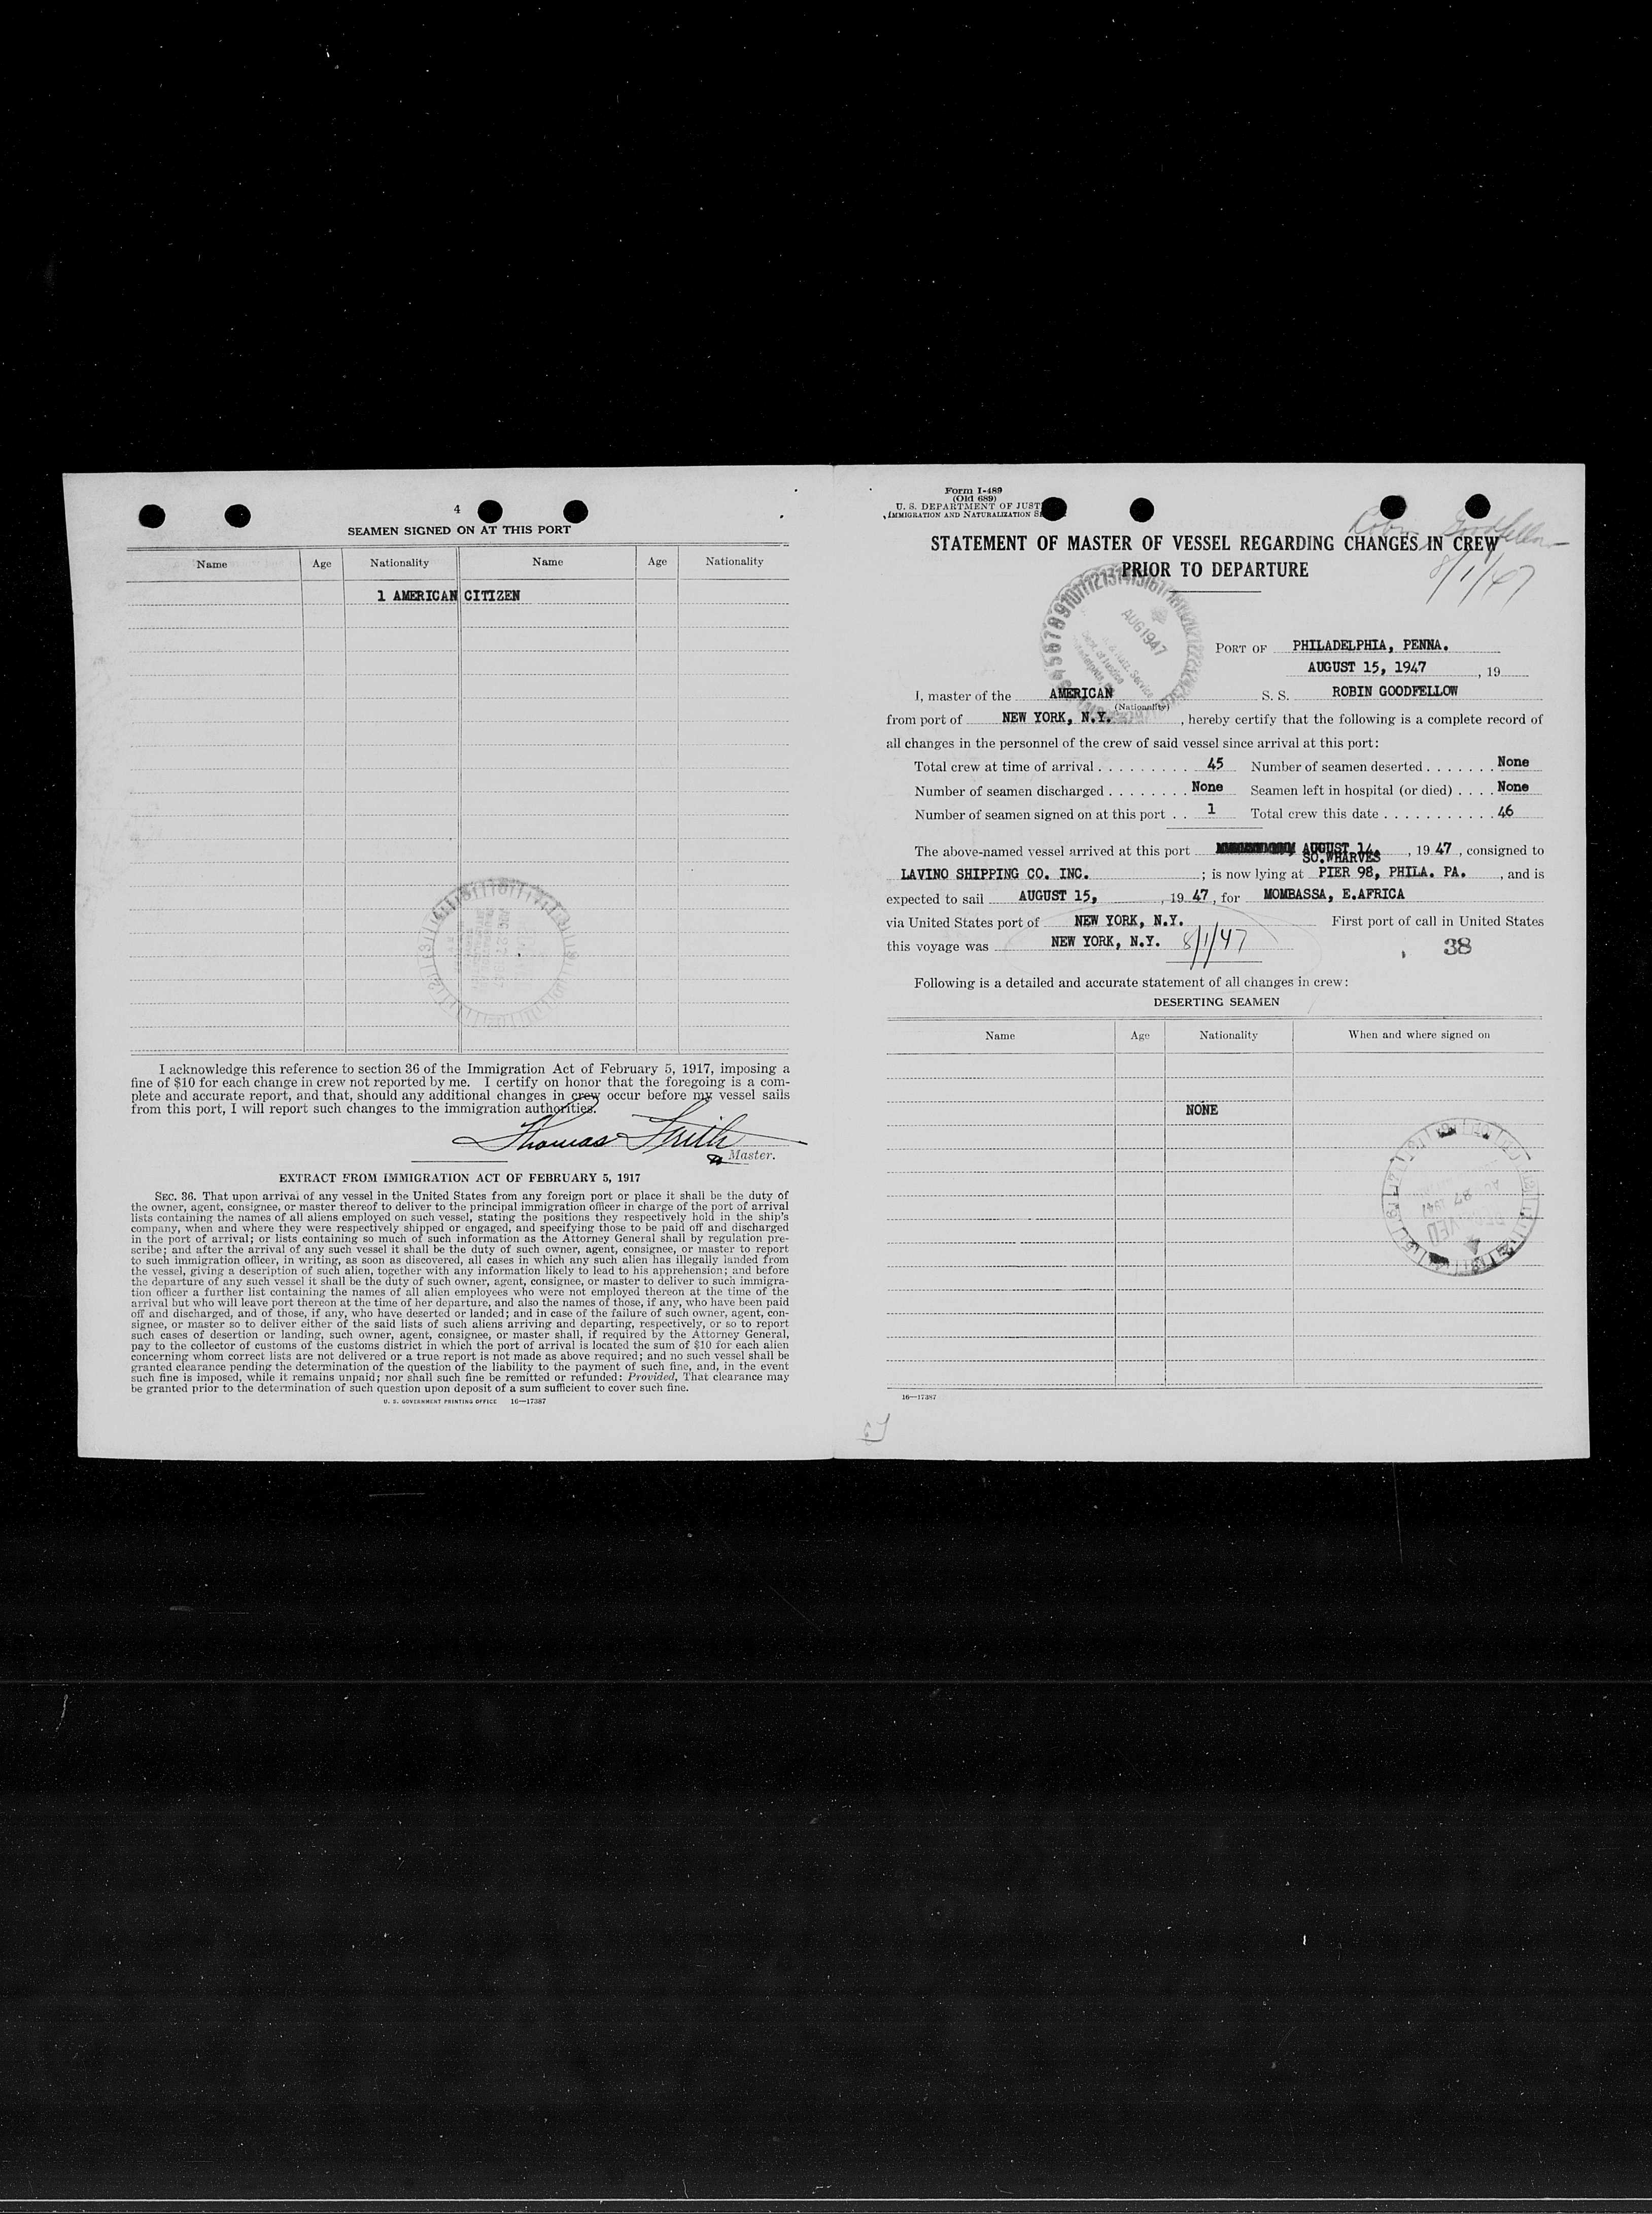 4
SEAMEN SIGNED ON AT THIS PORT
Name Age Nationality Name Age Nationality
1 AMERICAN CITIZEN
I acknowledge this reference to section 36 of the Immigration Act of February 5, 1917, imposing a
fine of $10 for each change in crew not reported by me. I certify on honor that the foregoing is a com-
plete and accurate report, and that, should any additional changes in crew occur before my vessel sails
from this port, I will report such changes to the immigration authorities.
Thomas Smith
Master.
EXTRACT FROM IMMIGRATION ACT OF FEBRUARY 5, 1917
SEC. 36. That upon arrival of any vessel in the United States from any foreign port or place it shall be the duty of
the owner, agent, consignee, or master thereof to deliver to the principal immigration officer in charge of the port of arrival
lists containing the names of all aliens employed on such vessel, stating the positions they respectively hold in the ship's
company, when and where they were respectively shipped or engaged, and specifying those to be paid off and discharged
in the port of arrival; or lists containing so much of such information as the Attorney General shall by regulation pre-
scribe; and after the arrival of any such vessel it shall be the duty of such owner, agent, consignee, or master to report
to such immigration officer, in writing, as soon as discovered, all cases in which any such alien has illegally landed from
the vessel, giving a description of such alien, together with any information likely to lead to his apprehension; and before
the departure of any such vessel it shall be the duty of such owner, agent, consignee, or master to deliver to such immigra-
tion officer a further list containing the names of all alien employees who were not employed thereon at the time of the
arrival but who will leave port thereon at the time of her departure, and also the names of those, if any, who have been paid
off and discharged, and of those, if any, who have deserted or landed; and in case of the failure of such owner, agent, con-
signee, or master so to deliver either of the said lists of such aliens arriving and departing, respectively, or so to report
such cases of desertion or landing, such owner, agent, consignee, or master shall, if required by the Attorney General,
pay to the collector of customs of the customs district in which the port of arrival is located the sum of $10 for each alien
concerning whom correct lists are not delivered or a true report is not made as above required; and no such vessel shall be
granted clearance pending the determination of the question of the liability to the payment of such fine, and, in the event
such fine is imposed, while it remains unpaid; nor shall such fine be remitted or refunded: Provided, That clearance may
be granted prior to the determination of such question upon deposit of a sum sufficient to cover such fine.
U. S. GOVERNMENT PRINTING OFFICE 16—17387
Form I-489
(Old 689)
U. S. DEPARTMENT OF JUST
IMMIGRATION AND NATURALIZATION S
Robin Goodfellow
8/1/47
STATEMENT OF MASTER OF VESSEL REGARDING CHANGES IN CREW
PRIOR TO DEPARTURE
AUG 1947
PORT OF PHILADELPHIA, PENNA.
AUGUST 15, 1947 , 19
I, master of the AMERICAN S. S. ROBIN GOODFELLOW
(Nationality)
from port of NEW YORK, N.Y. , hereby certify that the following is a complete record of
all changes in the personnel of the crew of said vessel since arrival at this port:
Total crew at time of arrival . . . . . . . . . 45 Number of seamen deserted . . . . . . . None
Number of seamen discharged . . . . . . . . None Seamen left in hospital (or died) . . . . None
Number of seamen signed on at this port . . 1 Total crew this date . . . . . . . . . . . 46
The above-named vessel arrived at this port AUGUST 14, , 19 47 , consigned to
SO.WHARVES
LAVINO SHIPPING CO. INC. ; is now lying at PIER 98, PHILA. PA. , and is
expected to sail AUGUST 15, , 19 47 , for MOMBASSA, E.AFRICA
via United States port of NEW YORK, N.Y. First port of call in United States
this voyage was NEW YORK, N.Y. 8/1/47 38
Following is a detailed and accurate statement of all changes in crew:
DESERTING SEAMEN
Name Age Nationality When and where signed on
NONE
16—17387